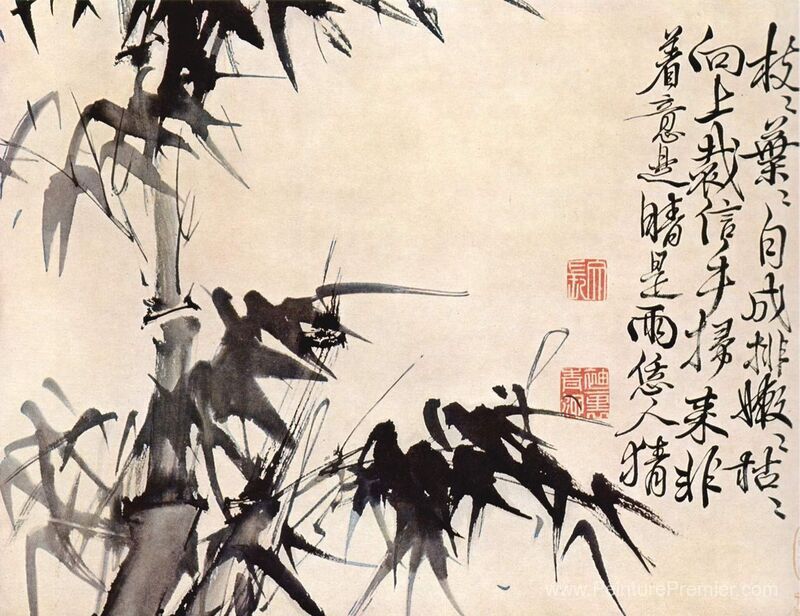 枝〻葉〻自成排嫩〻枯〻
向上裁信手掃来非
着意是晴是雨恁人猜
文長
www.PeinturePremier.com